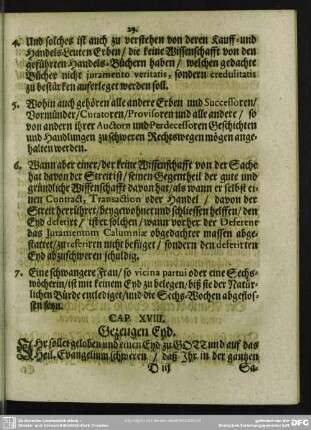 29.
4. Und solches ist auch zu verstehen von deren Kauff-und
Handels-Leuten Erben / die keine Wissenschafft von den
geführten Handels-Büchern haben / welchen gedachte
Bücher nicht juramento veritatis, sondern credulitatis
zu bestärken auferleget werden soll.
5. Wohin auch gehören alle andere Erben und Successoren/
Vormünder/Curatoren/Provisoren und alle andere / so
von andern ihrer Auctorn und Perdecessoren Geschichten
und Handlungen zu schweren Rechtswegen mögen ange-
halten werden.
6. Wann aber einer/der keine Wissenschafft von der Sache
hat davon der Streit ist / seinen Gegentheil der gute und
gründliche Wissenschafft davon hat / als wann er selbst ei-
nen Contract, Transaction oder Handel / davon der
Streit herrühret/ beygewohnet und schliessen helffen / den
Eyd deferirt / ist der solchen / wann vorher der Deferent
das Juramentum Calumniæ obgedachter massen abge-
stattet / zu referiren nicht befüget / sondern den deferirten
Eyd abzuschweren schuldig.
7. Eine schwangere Frau / so vicina partui oder eine Sechs-
wöcherin/ist mit keinem Eyd zu belegen/biß sie der Natür-
lichen Bürde entlediget/und die Sechs-Wochen abgeflos-
sen seyn.
CAP. XVIII.
Gezeugen Eyd.
IHr sollet geloben und einen Eyd zu GOTT und auf das
Heil. Evangelium schweren / daß Ihr in der gantzen
D iij Sa-